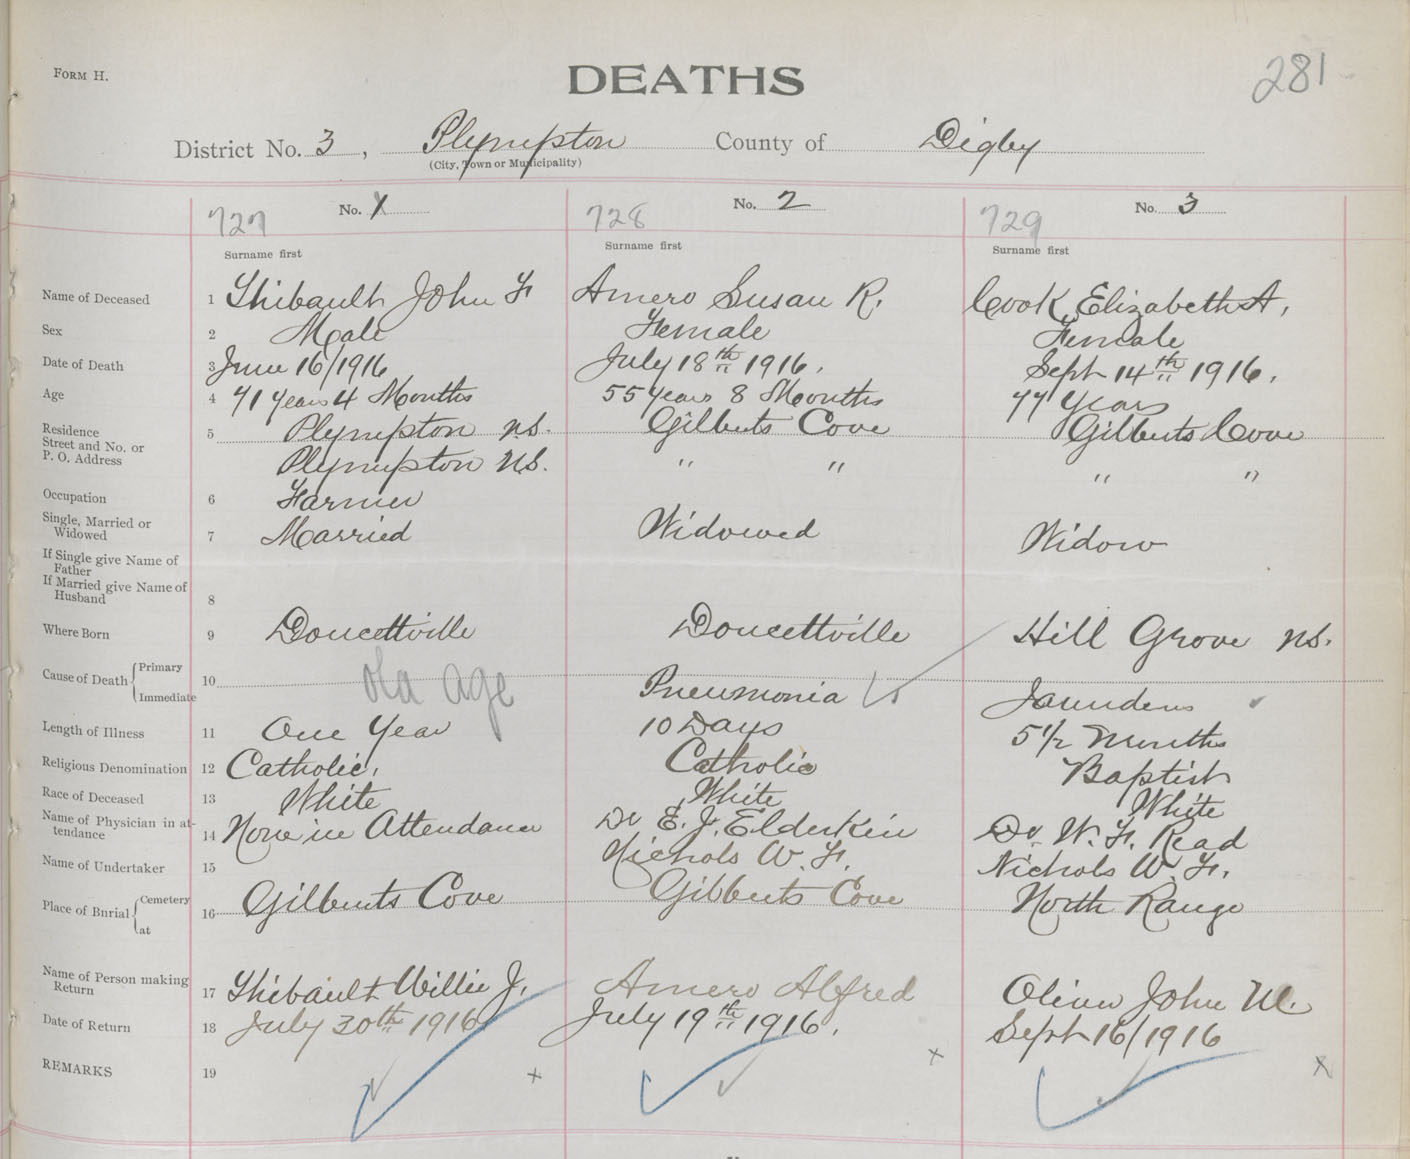 FORM H.
DEATHS
281
District No. 3, Plympton County of Digby
(City, Town or Municipality)
727 No. 1 728 No. 2 729 No. 3
Surname first Surname first Surname first
Name of Deceased 1 Thibault John F Amero Susan R. Cook, Elizabeth A,
Sex 2 Male Female Female
Date of Death 3 June 16/1916 July 18th 1916. Sept 14th 1916.
Age 4 71 years 4 Months 55 years 8 Months 77 Years
Residence 5 Plympton N.S. Gilberts Cove Gilberts Cove
Street and No. or
P. O. Address Plympton N.S. " " " "
Occupation 6 Farmer
Single, Married or
Widowed 7 Married Widowed Widow
If Single give Name of
Father
If Married give Name of
Husband 8
Where Born 9 Doucettville Doucettville Hill Grove N.S.
Cause of Death { Primary
Immediate 10 old age Pneumonia Jaundens
Length of Illness 11 One Year 10 Days 5 1/2 Months
Religious Denomination 12 Catholic, Catholic Baptist
Race of Deceased 13 White White White
Name of Physician in at-
tendance 14 None in Attendance Dr E. J. Elderkin Dr. W. F. Read
Name of Undertaker 15 Nichols W. F. Nichols W. F.
Place of Burial { Cemetery
at 16 Gilberts Cove Gilberts Cove North Range
Name of Person making
Return 17 Thibault Willie J. Amero Alfred Oliver John W.
Date of Return 18 July 30th 1916 July 19th 1916. Sept 16/1916
REMARKS 19 x x x